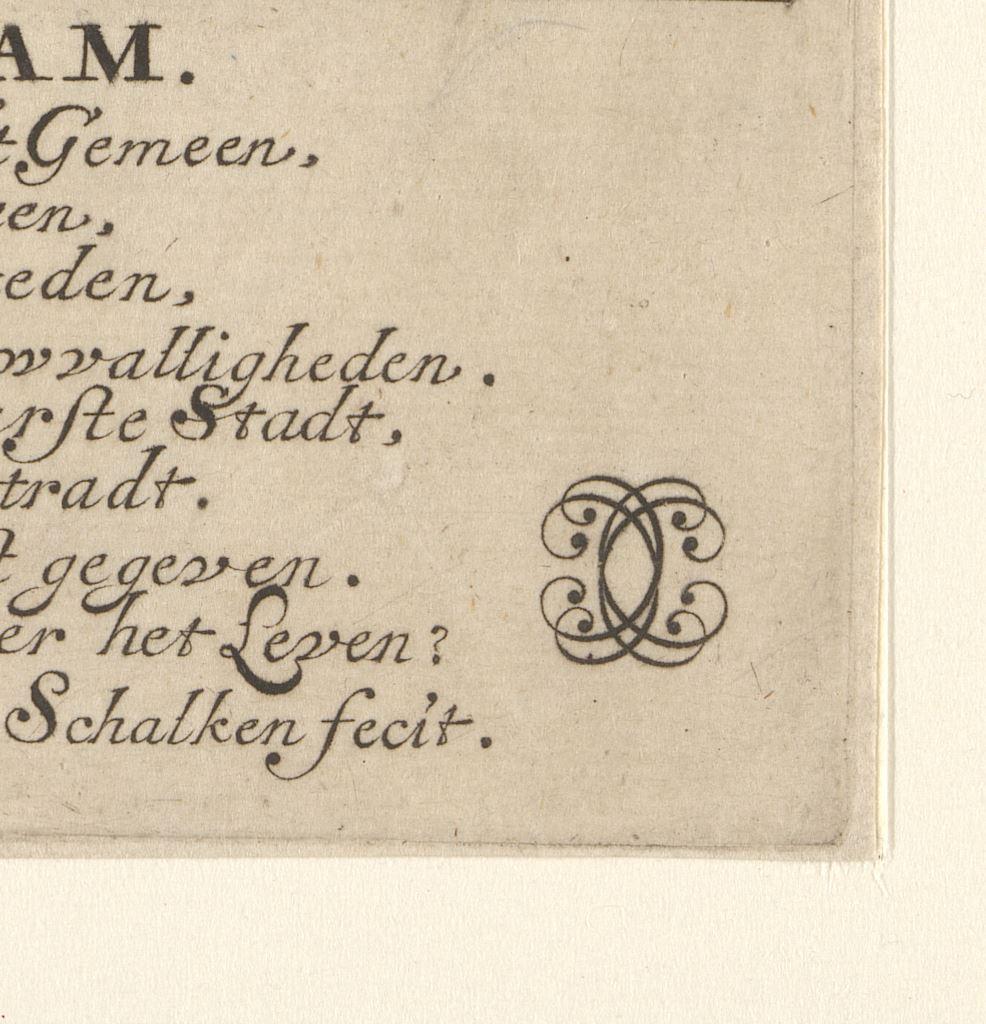 AM.
t Gemeen,
een,
eden,
wvalligheden.
rſte Stadt,
tradt.
t gegeven.
er het Leven?
Schalken fecit.